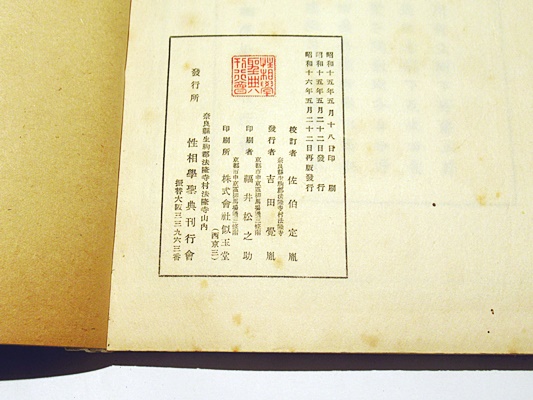 昭和十五年五月十八日印刷
昭和十五年五月二十二日發行
昭和十六年五月二十二日再版發行
奈良縣生駒郡法隆寺村法隆寺
校訂者 佐伯定胤
發行者 吉田覺胤
京都市中京區
印刷者 福井松之助
京都市中京區
印刷所 株式會社似玉堂
(西京三)
奈良縣生駒郡法隆寺村法隆寺山內
發行所 性相學聖典刊行會
振替大阪三三九六三番
性相學
聖典
刊行會